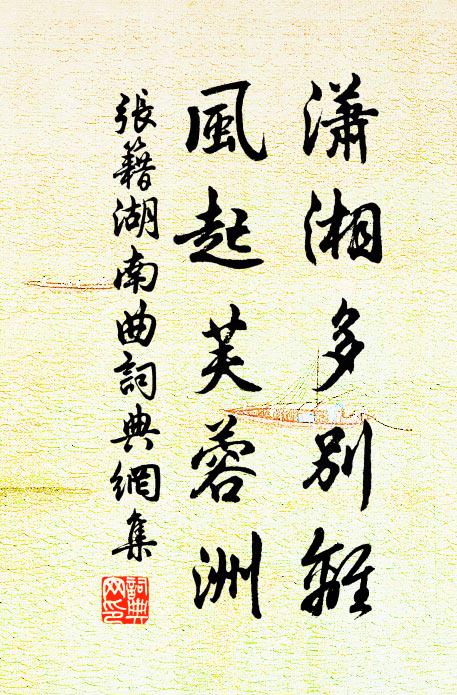 瀟湘多別離
風起芙蓉洲
張籍湖南曲詞典網集
詞典网印